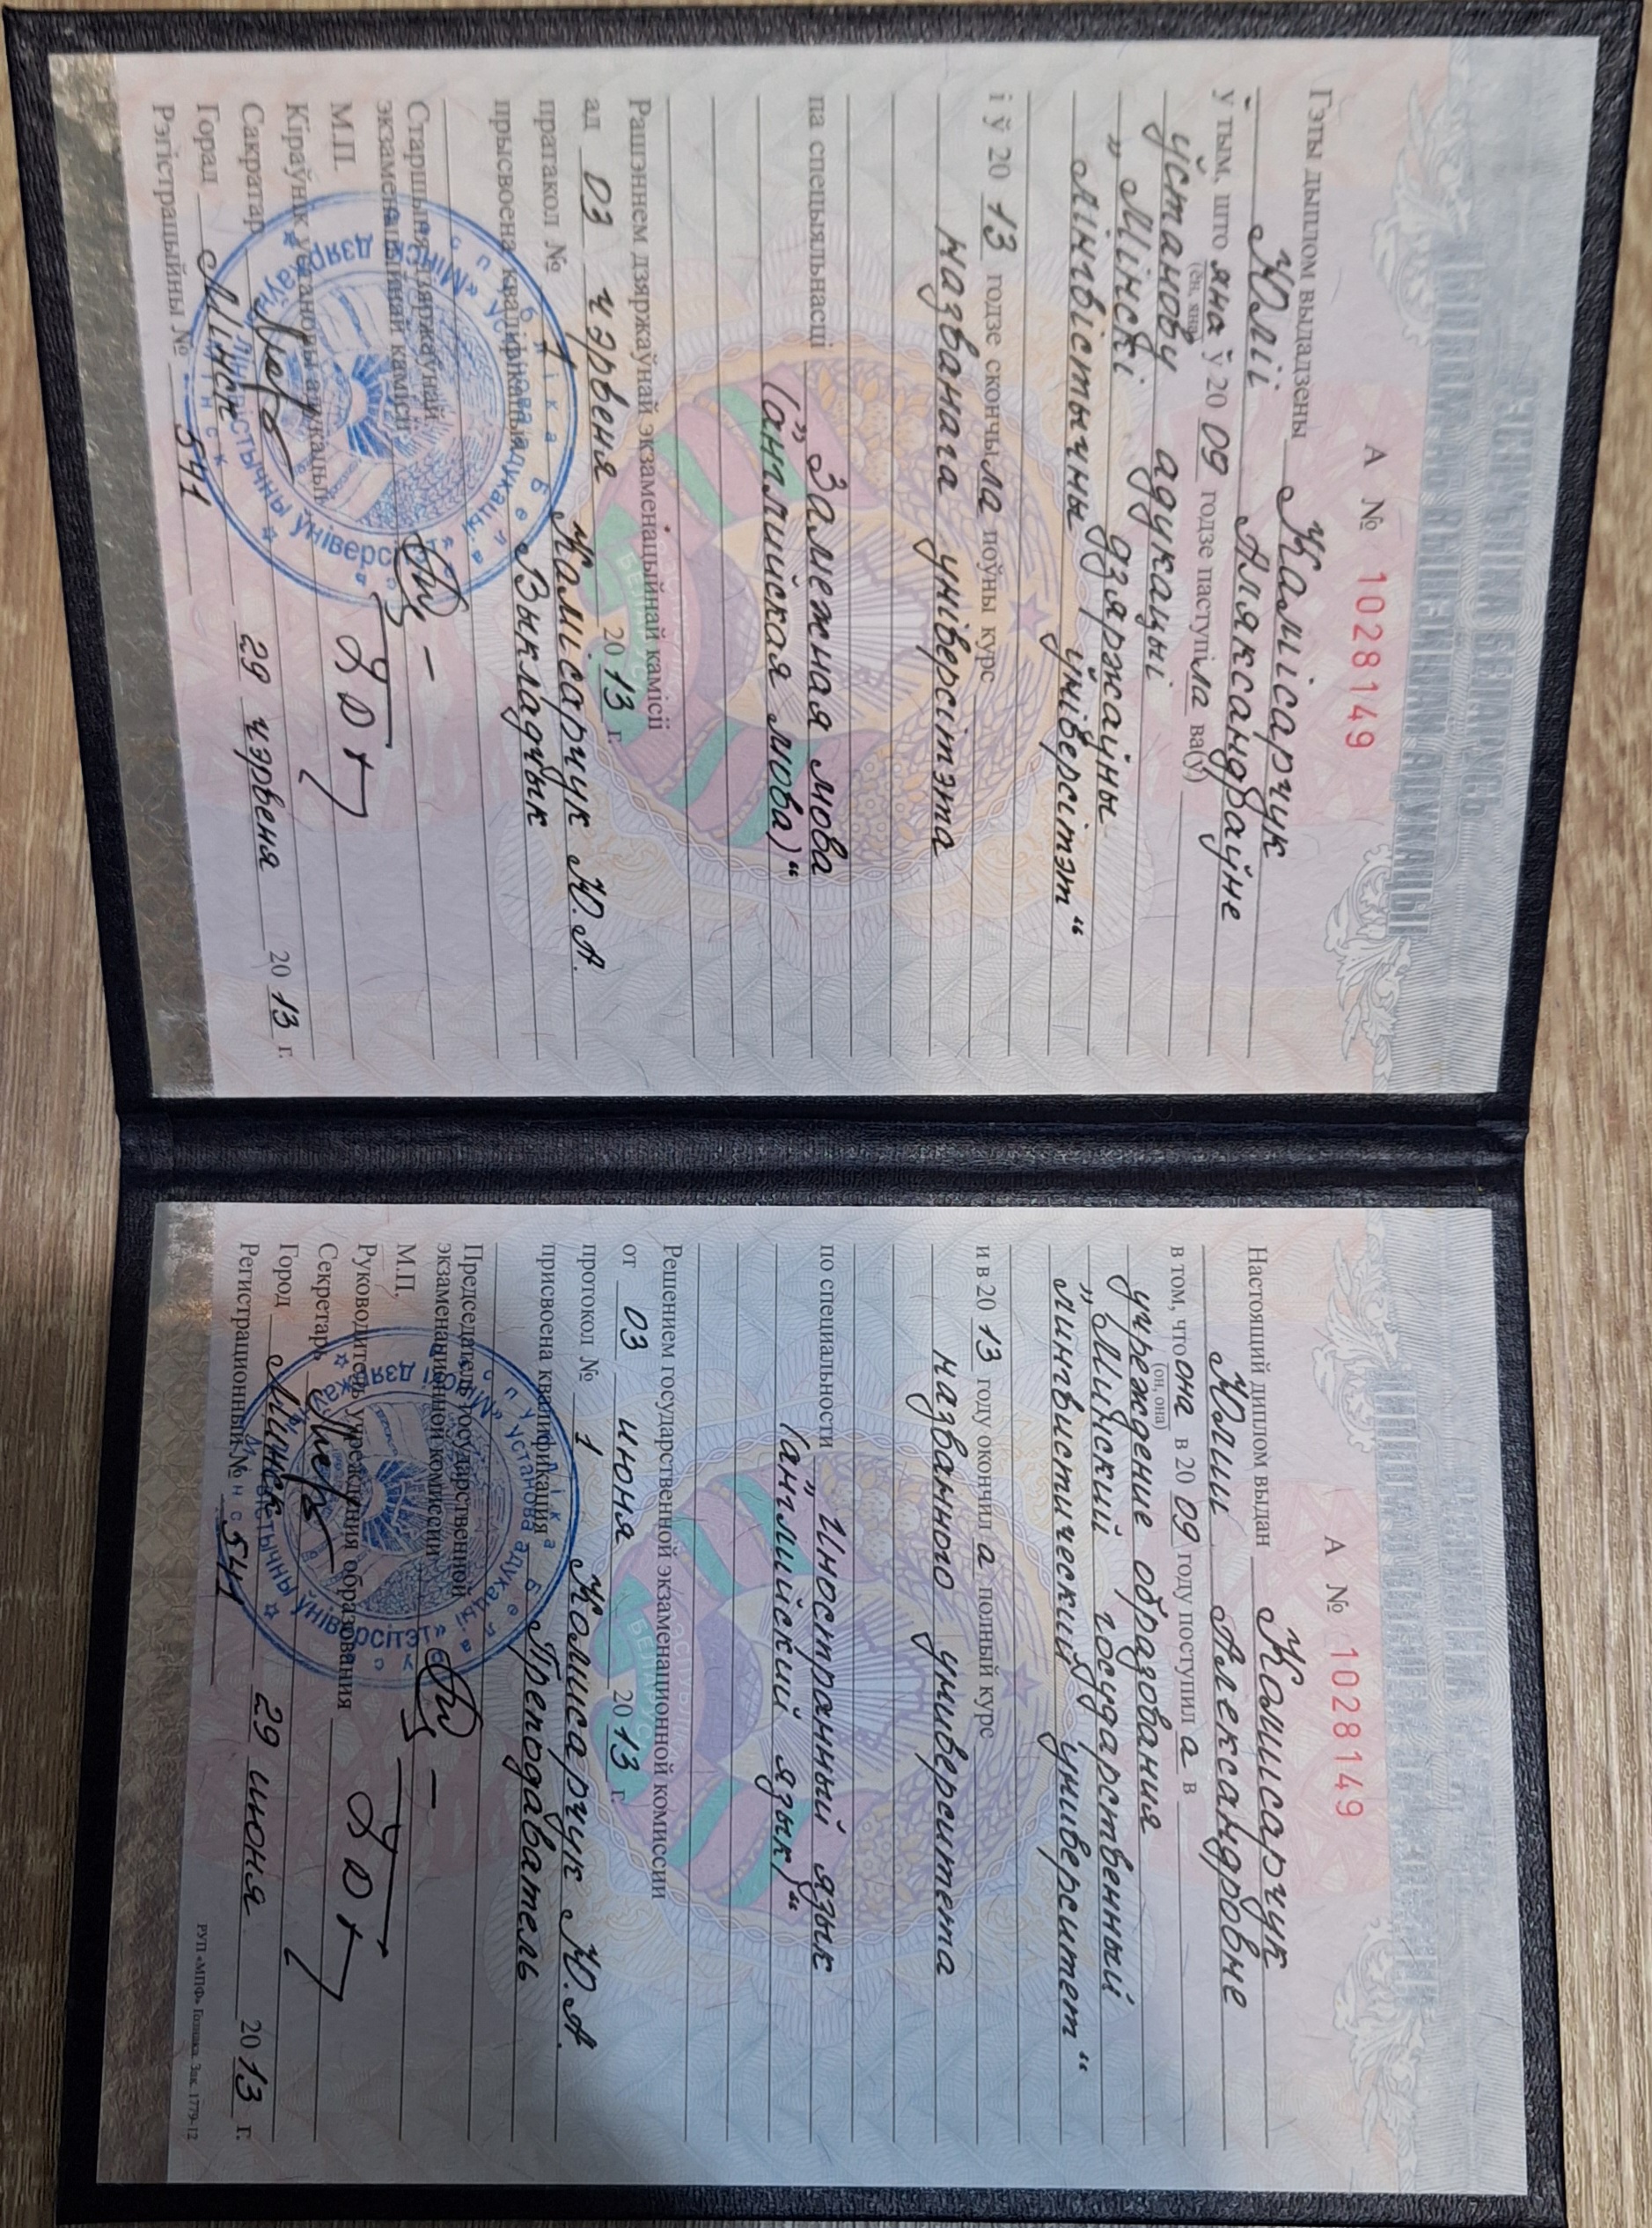 РЭСПУБЛІКА БЕЛАРУСЬ
ДЫПЛОМ АБ ВЫШЭЙШАЙ АДУКАЦЫІ
А № 1028149
Гэты дыплом выдадзены Камісарчук
Юліі Аляксандраўне
ў тым, што яна ў 20 09 годзе паступіла ва(ў)
(ён, яна)
ўстанову адукацыі
„Мінскі дзяржаўны
лінгвістычны ўніверсітэт“
і ў 20 13 годзе скончыла поўны курс
названага ўніверсітэта
па спецыяльнасці „Замежная мова
(англійская мова)“
Рашэннем дзяржаўнай экзаменацыйнай камісіі
ад 03 чэрвеня 20 13 г.
пратакол № 1 Камісарчук Ю.А.
прысвоена кваліфікацыя Выкладчык
Старшыня дзяржаўнай
экзаменацыйнай камісіі
М.П.
Кіраўнік установы адукацыі
Сакратар
Горад Мінск 29 чэрвеня 20 13 г.
Рэгістрацыйны № 541
ДИПЛОМ О ВЫСШЕМ ОБРАЗОВАНИИ
А № 1028149
Настоящий диплом выдан Комисарчук
Юлии Александровне
в том, что она в 20 09 году поступила в
(он, она)
учреждение образования
„Минский государственный
лингвистический университет“
и в 20 13 году окончила полный курс
названного университета
по специальности „Иностранный язык
(английский язык)“
Решением государственной экзаменационной комиссии
от 03 июня 20 13 г.
протокол № 1 Комисарчук Ю.А.
присвоена квалификация Преподаватель
Председатель государственной
экзаменационной комиссии
М.П.
Руководитель учреждения образования
Секретарь
Город Минск 29 июня 20 13 г.
Регистрационный № 541
РУП «МПФ» Гознака. Зак. 1779-12